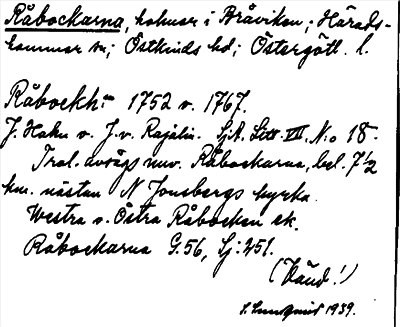 Råbockarna, holmar i Bråviken; Härads-
hammar sn; Östkinds hd; Östergötl. l.
Råbockh:ⁿ 1752 o. 1767.
J. Hahn o. J. v. Rajalin. SjK. Litt. VII. N:o 18.
Trol. avsågs nuv. Råbockarna, bel. 7½
km. nästan N Jonsbergs kyrka.
Westra o. Östra Råbocken ek.
Råbockarna G. 56, Sj: 251.
(Vänd!)
S. Lundqvist 1939.